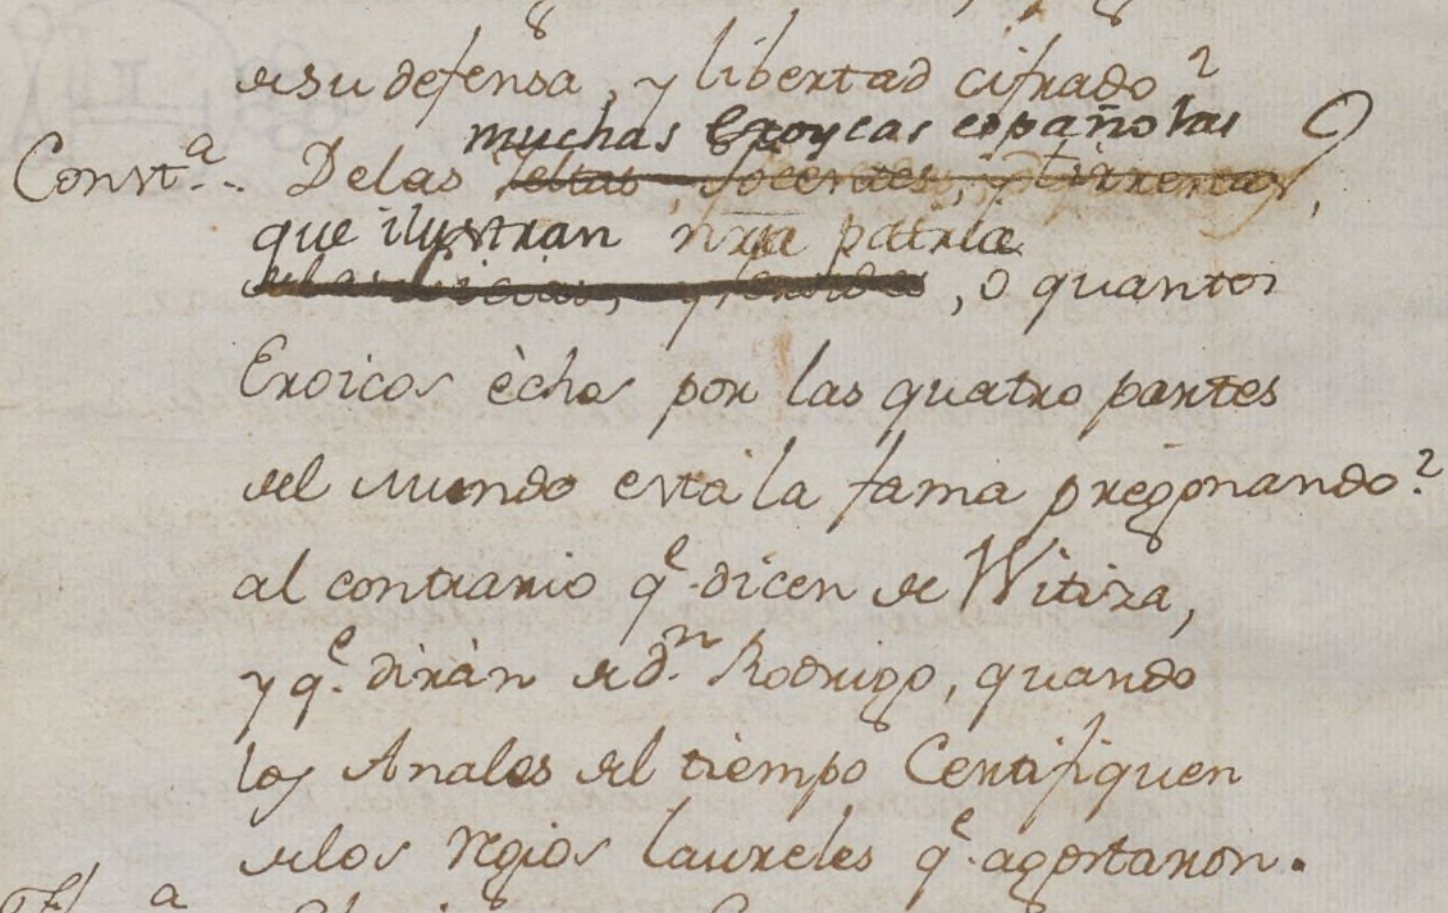 de su defensa, y libertad cifrado?
muchas Eroycas españolas
Const.ª.. De las Celtas, focenses, y tirrenas,
que ilustran nra patria
, o quantos
Eroicos èchos por las quatro partes
del mundo està la fama pregonando?
al contrario q.e dicen de Witiza,
y q.e diràn de d.n Rodrigo, quando
los Anales del tiempo Certifiquen
de los regios laureles q.e agostaron.